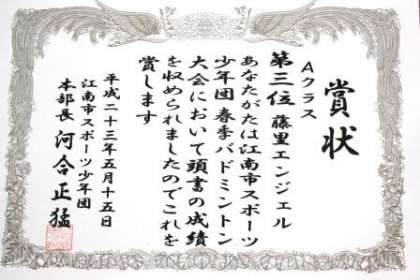 賞状
Aクラス
第三位 藤里エンジェル
あなたがたは江南市スポーツ
少年団春季バドミントン
大会において頭書の成績
を収められましたのでこれを
賞します
平成二十三年五月十五日
江南市スポーツ少年団
本部長 河合正猛